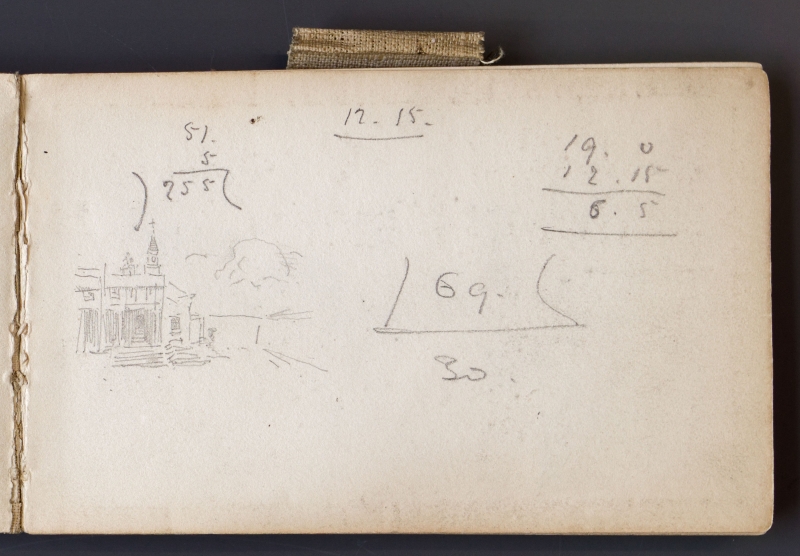 12. 15.
51.
5
255
19. 0
12. 15
6. 5
69.
30.